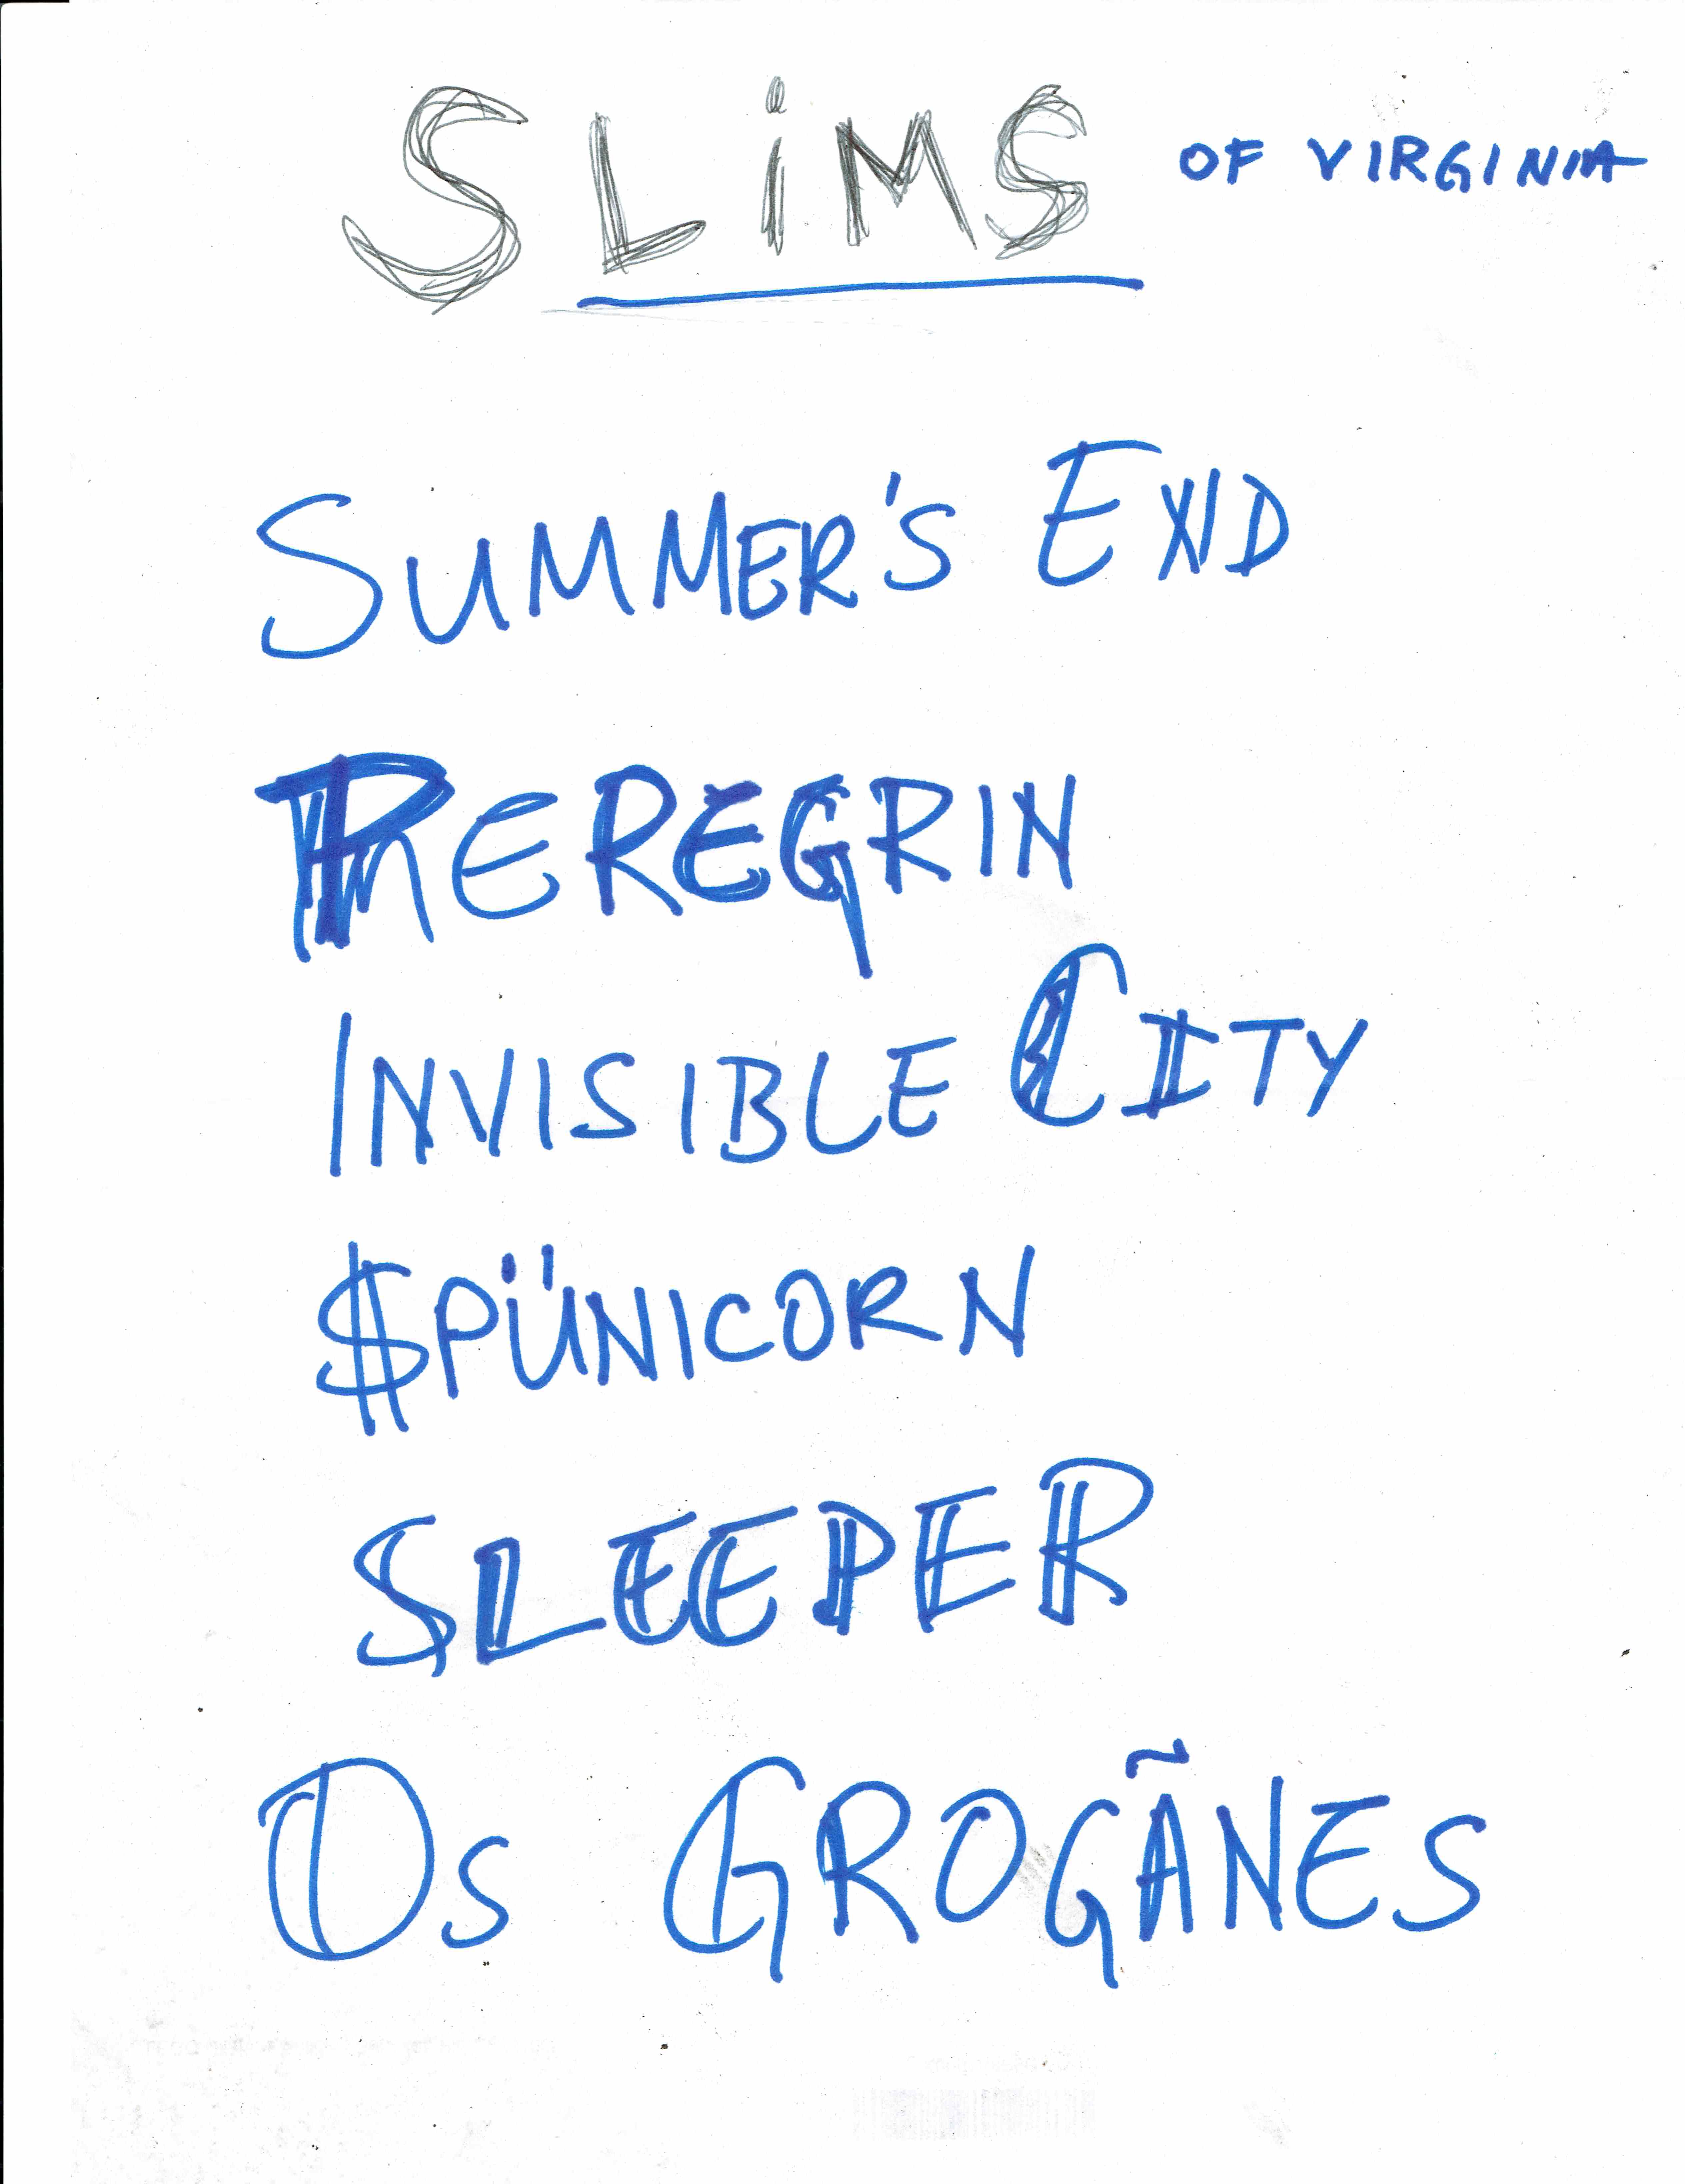 SLiMS OF VIRGINIA
SUMMER'S END
PEREGRIN
INVISIBLE CITY
$PÜNICORN
SLEEPER
OS GROGÃNES